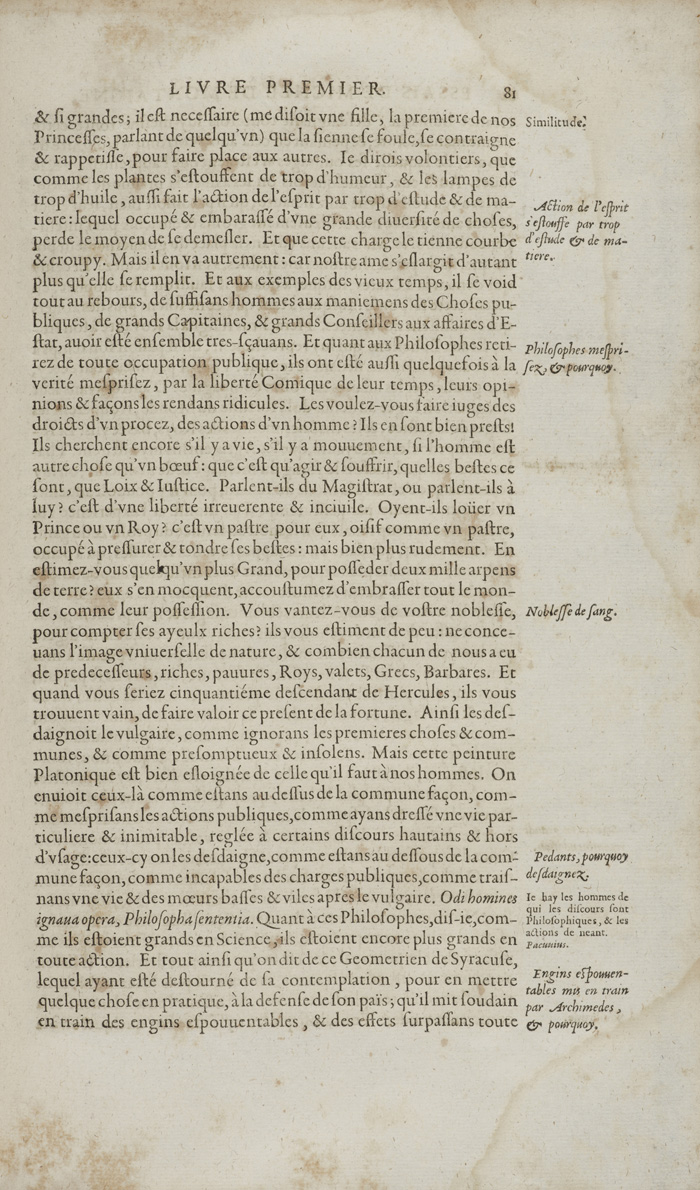 LIVRE PREMIER. 81
& ſi grandes; il eſt neceſſaire (me diſoit vne fille, la premiere de nos
Princeſſes, parlant de quelqu'vn) que la ſienne ſe foule, ſe contraigne
& rappetiſſe, pour faire place aux autres. Ie dirois volontiers, que
comme les plantes s'eſtouffent de trop d'humeur, & les lampes de
trop d'huile, auſſi fait l'action de l'eſprit par trop d'eſtude & de ma-
tiere: lequel occupé & embaraſſé d'vne grande diuerſité de choſes,
perde le moyen de ſe demeſler. Et que cette charge le tienne courbe
& croupy. Mais il en va autrement: car noſtre ame s'eſlargit d'autant
plus qu'elle ſe remplit. Et aux exemples des vieux temps, il ſe void
tout au rebours, de ſuffiſans hommes aux maniemens des Choſes pu-
bliques, de grands Capitaines, & grands Conſeillers aux affaires d'E-
ſtat, auoir eſté enſemble tres-ſçauans. Et quant aux Philoſophes reti-
rez de toute occupation publique, ils ont eſté auſſi quelquefois à la
verité meſpriſez, par la liberté Comique de leur temps, leurs opi-
nions & façons les rendans ridicules. Les voulez-vous faire iuges des
droicts d'vn procez, des actions d'vn homme? Ils en ſont bien preſts!
Ils cherchent encore s'il y a vie, s'il y a mouuement, ſi l'homme eſt
autre choſe qu'vn bœuf: que c'eſt qu'agir & ſouffrir, quelles beſtes ce
ſont, que Loix & Iuſtice. Parlent-ils du Magiſtrat, ou parlent-ils à
luy? c'eſt d'vne liberté irreuerente & inciuile. Oyent-ils loüer vn
Prince ou vn Roy? c'eſt vn paſtre pour eux, oiſif comme vn paſtre,
occupé à preſſurer & tondre ſes beſtes: mais bien plus rudement. En
eſtimez-vous quelqu'vn plus Grand, pour poſſeder deux mille arpens
de terre? eux s'en mocquent, accouſtumez d'embraſſer tout le mon-
de, comme leur poſſeſſion. Vous vantez-vous de voſtre nobleſſe,
pour compter ſes ayeulx riches? ils vous eſtiment de peu: ne conce-
uans l'image vniuerſelle de nature, & combien chacun de nous a eu
de predeceſſeurs, riches, pauures, Roys, valets, Grecs, Barbares. Et
quand vous ſeriez cinquantiéme deſcendant de Hercules, ils vous
trouuent vain, de faire valoir ce preſent de la fortune. Ainſi les deſ-
daignoit le vulgaire, comme ignorans les premieres choſes & com-
munes, & comme preſomptueux & inſolens. Mais cette peinture
Platonique eſt bien eſloignée de celle qu'il faut à nos hommes. On
enuioit ceux-là comme eſtans au deſſus de la commune façon, com-
me meſpriſans les actions publiques, comme ayans dreſſé vne vie par-
ticuliere & inimitable, reglée à certains diſcours hautains & hors
d'vſage: ceux-cy on les deſdaigne, comme eſtans au deſſous de la com-
mune façon, comme incapables des charges publiques, comme traiſ-
nans vne vie & des mœurs baſſes & viles apres le vulgaire. Odi homines
ignaua opera, Philoſopha ſententia. Quant à ces Philoſophes, diſ-ie, com-
me ils eſtoient grands en Science, ils eſtoient encore plus grands en
toute action. Et tout ainſi qu'on dit de ce Geometrien de Syracuſe,
lequel ayant eſté deſtourné de ſa contemplation, pour en mettre
quelque choſe en pratique, à la defenſe de ſon païs; qu'il mit ſoudain
en train des engins eſpouuentables, & des effets ſurpaſſans toute
Similitude.
Action de l'eſprit
s'eſtouffe par trop
d'eſtude & de ma-
tiere.
Philoſophes meſpri-
ſez, & pourquoy.
Nobleſſe de ſang.
Pedants, pourquoy
deſdaignez.
Ie hay les hommes de
qui les diſcours ſont
Philoſophiques, & les
actions de neant.
Pacuuius.
Engins eſpouuen-
tables mis en train
par Archimedes,
& pourquoy.